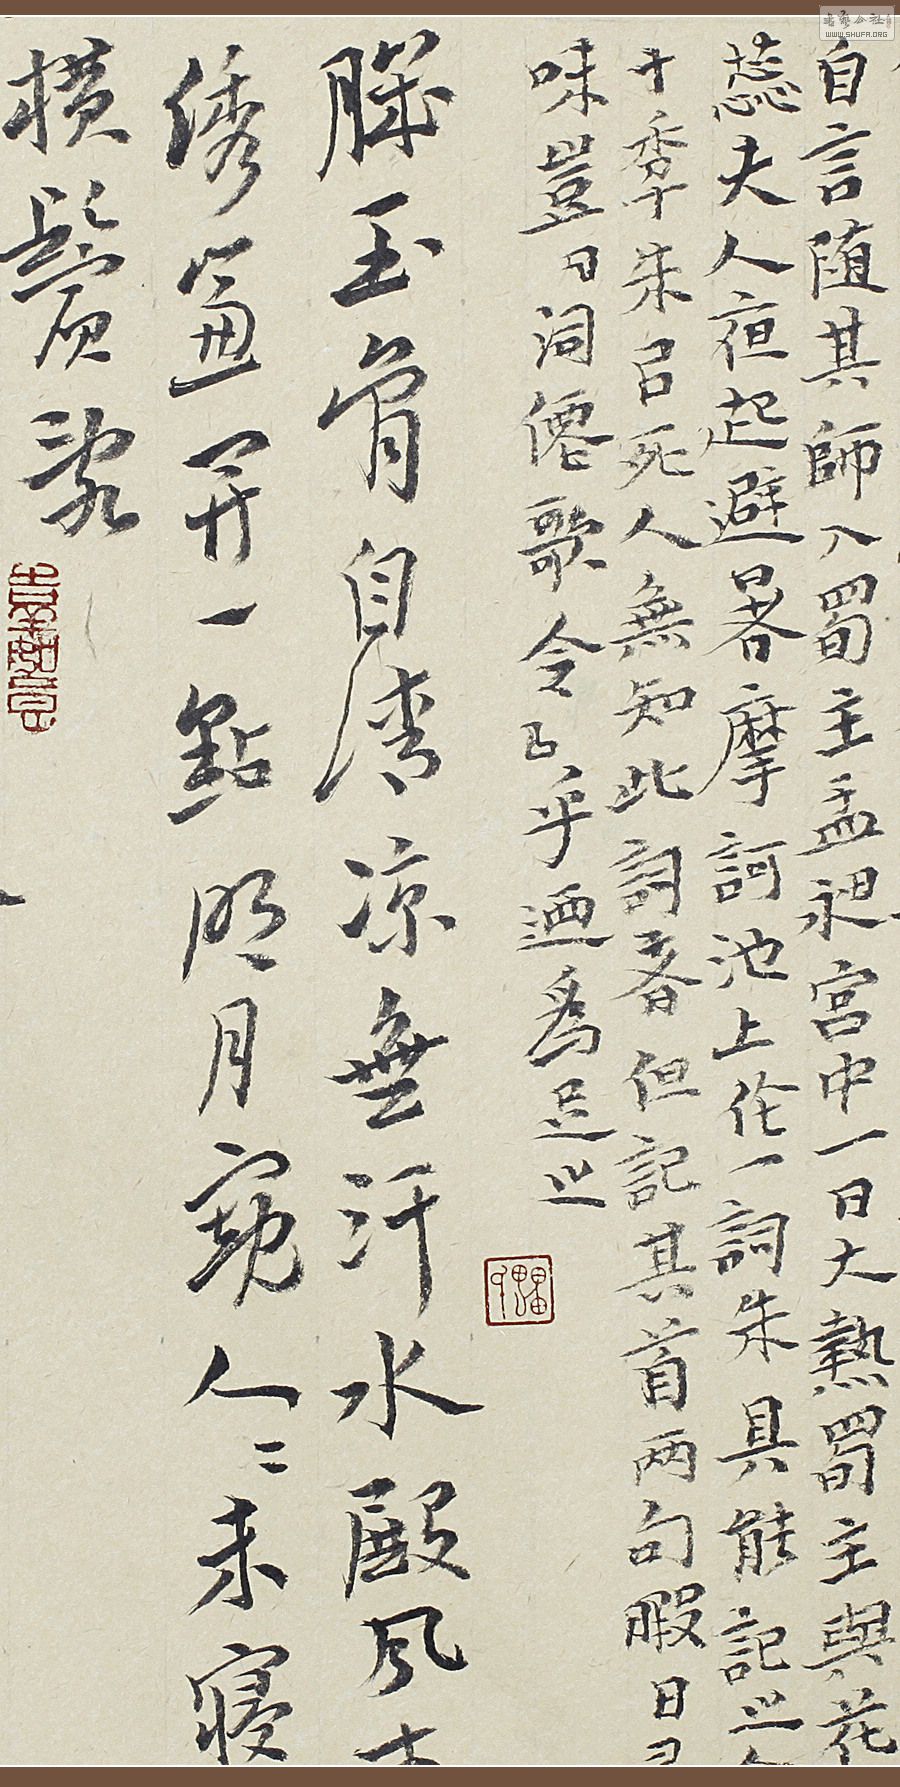 書藝公社
WWW.SHUFA.ORG
自言随其師入蜀主孟昶宮中一日大熱蜀主與花
蕊夫人夜起避暑摩訶池上作一詞朱具能記之
十季朱已死人無知此詞者但記其首两句暇日
味豈曰洞僊歌令乎迺為足之
玉骨自清凉無汗水殿風
綉簾開一點明月窺人〻未寢
横鬢亂